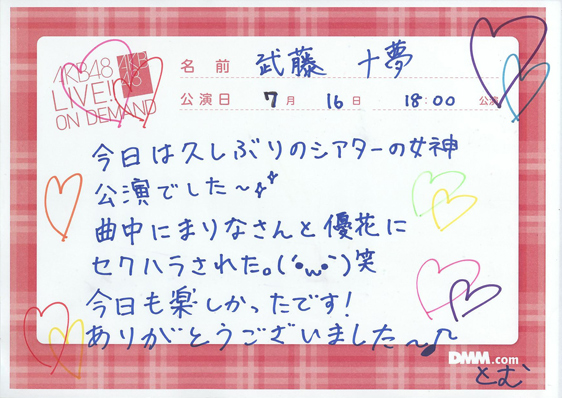 AKB48
LIVE!!
ON DEMAND
AKB
48
名前 武藤 十夢
公演日 7月 16日 18:00 公演
今日は久しぶりのシアターの女神
公演でした～
曲中にまりなさんと優花に
セクハラされた。(´・ω・`)笑
今日も楽しかったです!
ありがとうございました～♪
DMM.com
とむ